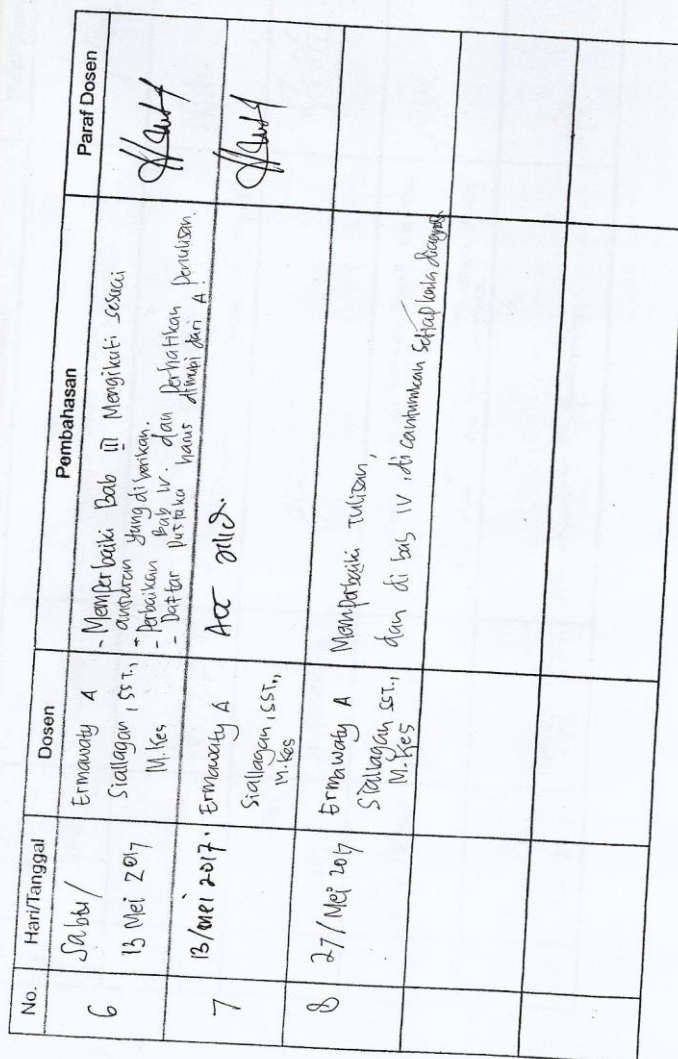 No. Hari/Tanggal Dosen Pembahasan Paraf Dosen
6
Sabtu/
13 Mei 2017
Ermawaty A
Siallagan, SST.,
M.Kes
- Memperbaiki Bab III Mengikuti sesuai
yang diberikan.
- Perbaikan Bab IV. dan Perhatikan Penulisan.
- Daftar Pustaka harus dimulai dari A!
7
13/mei 2017.
Ermawaty A
Siallagan, SST.,
M.Kes
Acc
8
27/Mei 2017
Ermawaty A
Siallagan SST.,
M.Kes
Memperbaiki Tulisan,
dan di bab IV, di cantumkan setiap